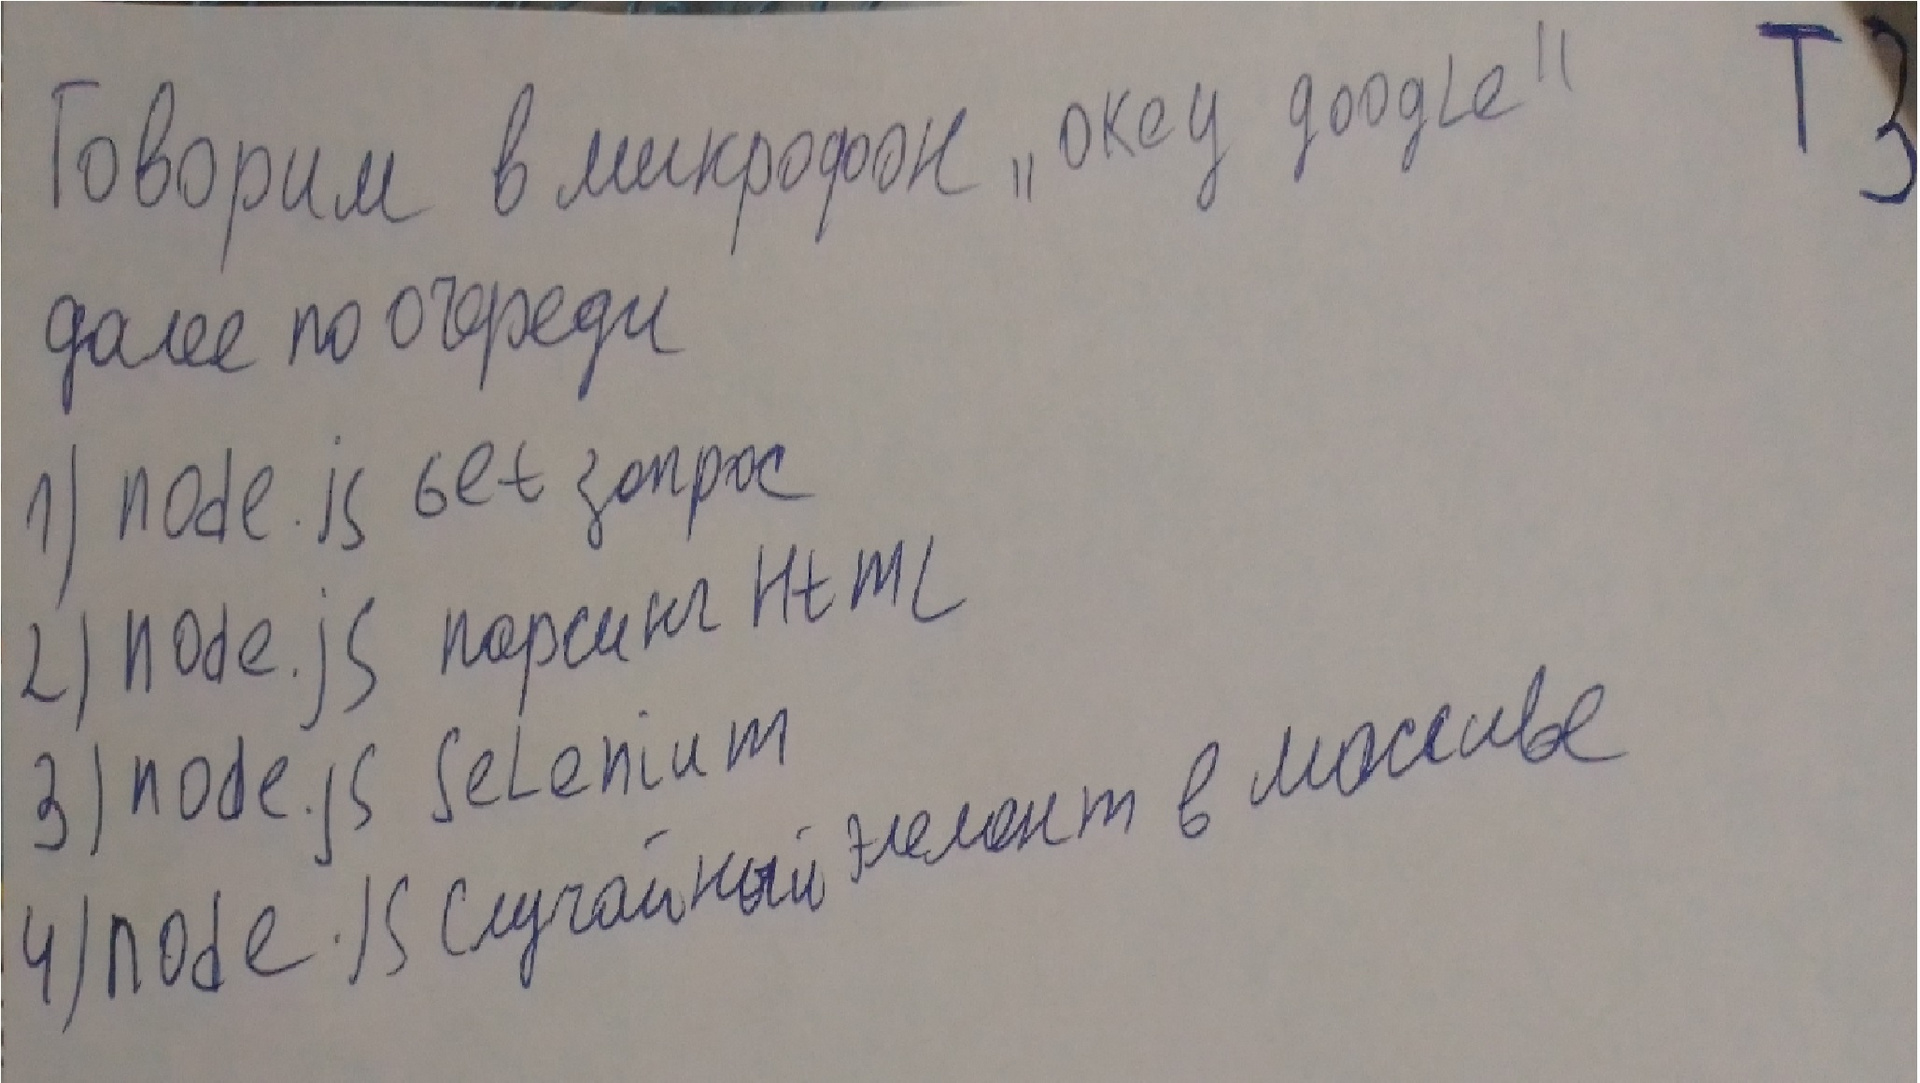 ТЗ
Говорим в микрофон „окей google"
далее по очереди
1) node.js get запрос
2) node.js парсинг HtML
3) node.js SeLenium
4) node.js случайный элемент в массиве